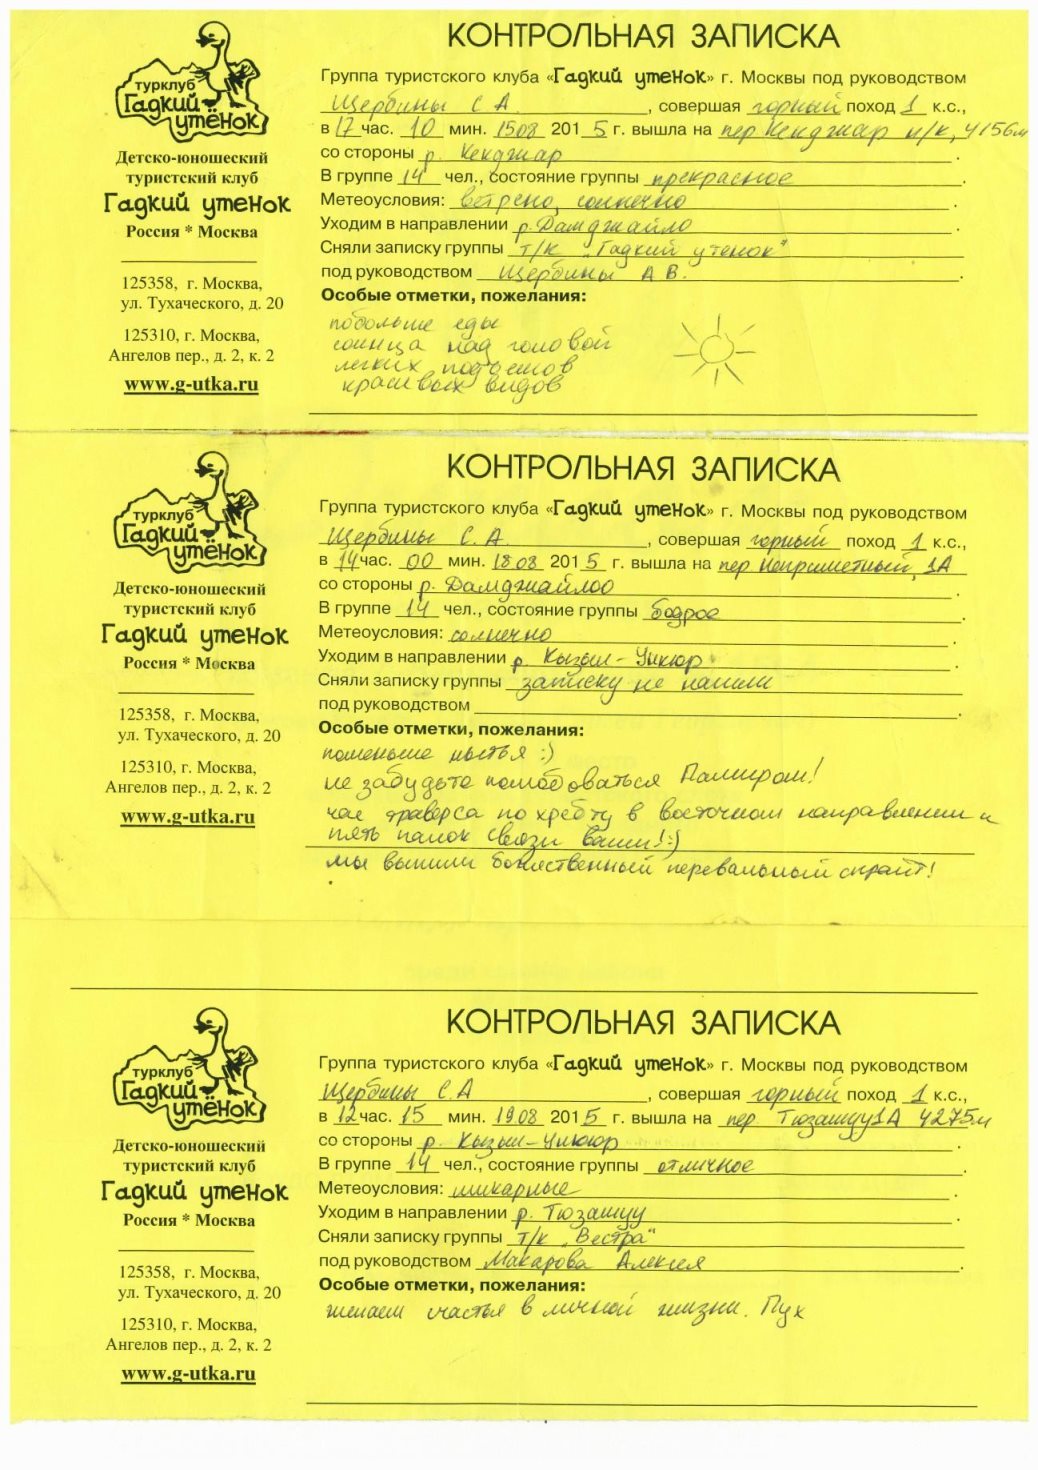 турклуб
Гадкий
утёнок
Детско-юношеский
туристский клуб
Гадкий утенок
Россия * Москва
125358, г. Москва,
ул. Тухаческого, д. 20
125310, г. Москва,
Ангелов пер., д. 2, к. 2
www.g-utka.ru
КОНТРОЛЬНАЯ ЗАПИСКА
Группа туристского клуба «Гадкий утенок» г. Москвы под руководством
Щербины С А , совершая горный поход 1 к.с.,
в 17 час. 10 мин. 15 08 2015 г. вышла на пер Кенджар н/к, 4156м
со стороны р. Кенджар .
В группе 14 чел., состояние группы прекрасное .
Метеоусловия: ветрено, солнечно .
Уходим в направлении р. Дамджайло .
Сняли записку группы т/к "Гадкий утенок"
под руководством Щербины А В. .
Особые отметки, пожелания:
побольше еды
солнца над головой
легких подъемов
красивых видов
турклуб
Гадкий
утёнок
Детско-юношеский
туристский клуб
Гадкий утенок
Россия * Москва
125358, г. Москва,
ул. Тухаческого, д. 20
125310, г. Москва,
Ангелов пер., д. 2, к. 2
www.g-utka.ru
КОНТРОЛЬНАЯ ЗАПИСКА
Группа туристского клуба «Гадкий утенок» г. Москвы под руководством
Щербины С. А. , совершая горный поход 1 к.с.,
в 14 час. 00 мин. 18.08 2015 г. вышла на пер Неприметный, 1А
со стороны р. Дамджайлоо .
В группе 14 чел., состояние группы бодрое .
Метеоусловия: солнечно .
Уходим в направлении р. Кызыл-Ункюр .
Сняли записку группы записку не нашли
под руководством .
Особые отметки, пожелания:
поменьше нытья :)
не забудьте полюбоваться Памиром!
час траверса по хребту в восточном направлении и
пять палок связи ваши! :)
мы выпили божественный перевальный спрайт!
турклуб
Гадкий
утёнок
Детско-юношеский
туристский клуб
Гадкий утенок
Россия * Москва
125358, г. Москва,
ул. Тухаческого, д. 20
125310, г. Москва,
Ангелов пер., д. 2, к. 2
www.g-utka.ru
КОНТРОЛЬНАЯ ЗАПИСКА
Группа туристского клуба «Гадкий утенок» г. Москвы под руководством
Щербины С.А , совершая горный поход 1 к.с.,
в 12 час. 15 мин. 19.08 2015 г. вышла на пер. Тюзашуу 1А 4275м
со стороны р. Кызыл-Ункюр .
В группе 14 чел., состояние группы отличное .
Метеоусловия: шикарные .
Уходим в направлении р. Тюзашуу .
Сняли записку группы т/к "Вестра"
под руководством Макарова Алексея .
Особые отметки, пожелания:
желаем счастья в личной жизни. Пух